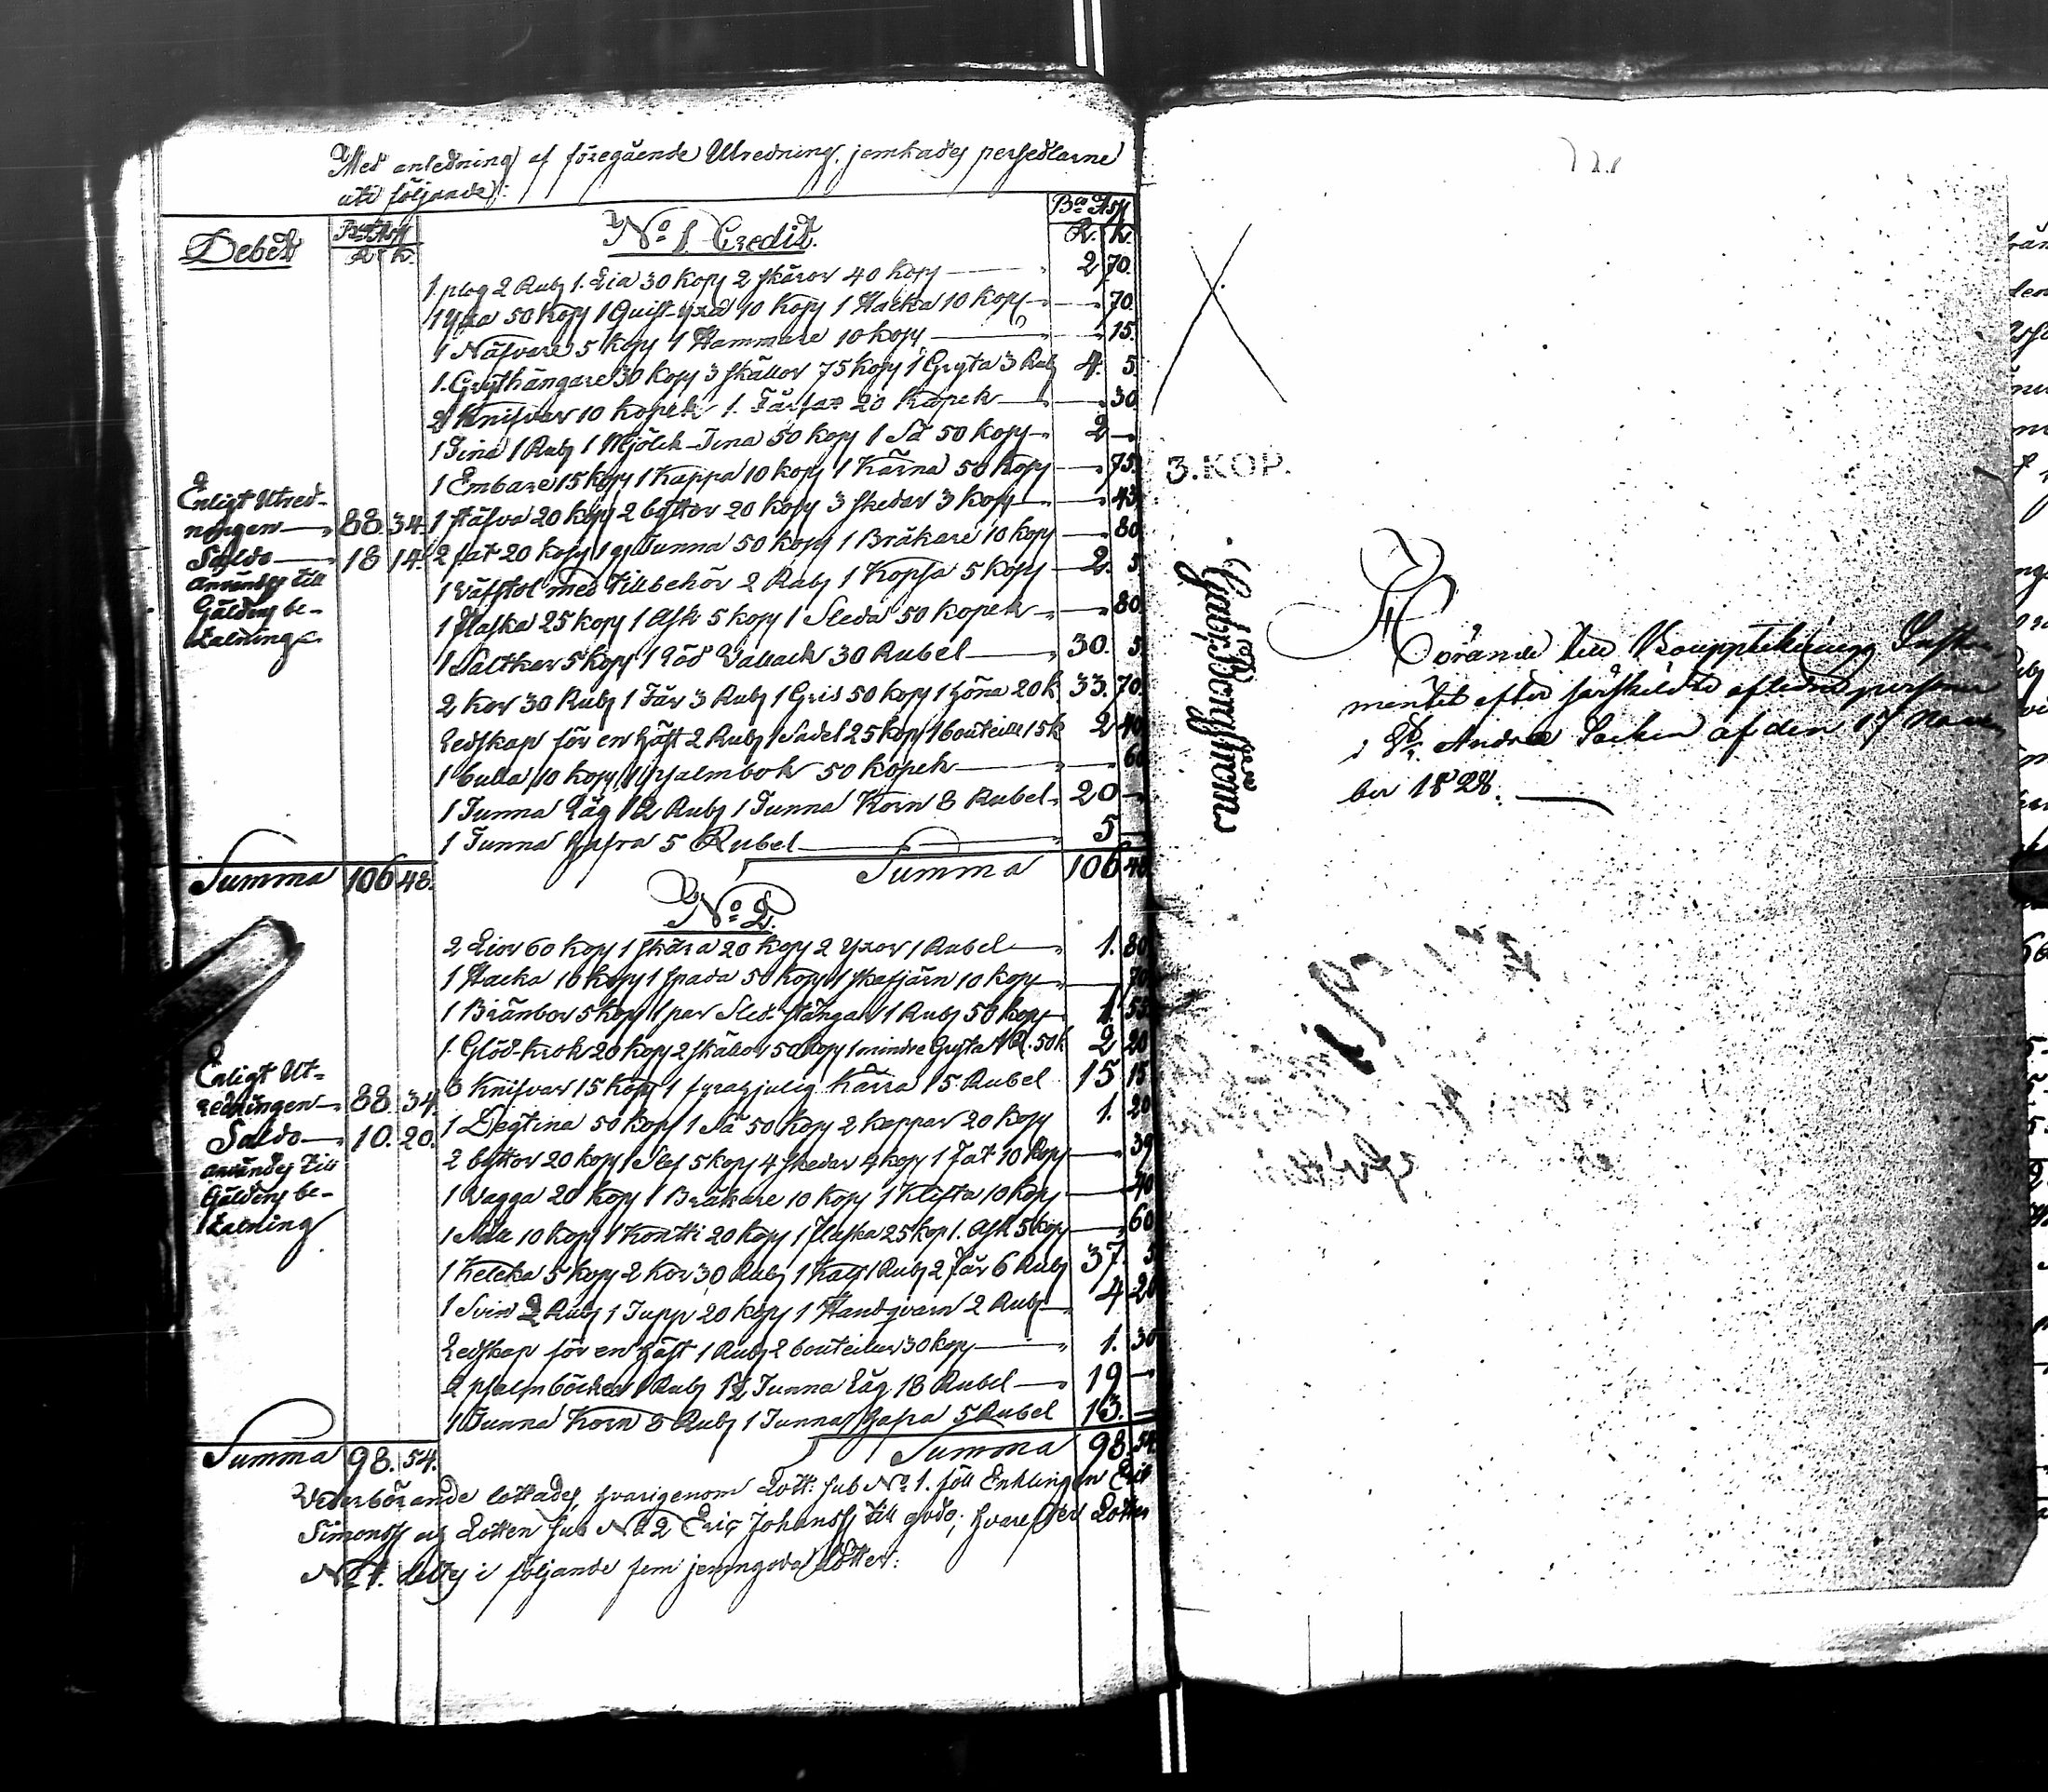 Med anledning af föregående Utredning, jemkades persedlarne
uti följande:
Debet
Bco Ass
R. k.
No 1. Credit.
Bco Ass
R. k.
1 plog 2 Rub 1 Lia 30 kop 2 skäror 40 kop 2 70.
1 Yxa 50 kop 1 Quist-yxa 10 kop 1 Hacka 10 kop 70.
1 Näfvare 5 kop 1 Hammare 10 kop 15.
1 Grythängare 30 kop 3 skällor 75 kop 1 Gryta 3 Rub 4. 5.
2 Knifvar 10 kopek 1 Färsax 20 Kopek 30.
1 Tina 1 Rub 1 Mjölk-Tina 50 kop 1 Så 50 kop 2
1 Embare 15 kop 1 Kappa 10 kop 1 Kärna 50 kop 75.
Enligt Utred-
ningen 88. 34.
Saldo 18 14.
användes till
Gäldens be-
talning
1 stäfva 20 kop 2 byttor 20 kop 3 skedar 3 kop 43.
2 fat 20 kop 1 Tunna 50 kop 1 Bråkare 10 kop 80.
1 Väfstol med tillbehör 2 Rub 1 Kopsa 5 kop 2. 5.
1 flaska 25 kop 1 Ask 5 kop 1 Släda 50 kopek 80.
1 Saltkar 5 kop 1 röd Vallack 30 Rubel 30. 5.
2 Kor 30 Rub 1 Får 3 Rub 1 Gris 50 kop 1 höna 20 k. 33. 70.
Redskap för en häst 2 Rub 1 Sadel 25 kop 1 bouteille 15 k 2 40
1 bulla 10 kop 1 psalmbok 50 kopek 60
1 Tunna Råg 12 Rub 1 Tunna Korn 8 Rubel 20
1 Tunna hafra 5 Rubel 5
Summa 106 48.
Summa 106 48
No 2.
2 Lior 60 kop 1 skära 20 kop 2 Yxor 1 Rubel 1. 80
1 Hacka 10 kop 1 spada 50 kop 1 skafjärn 10 kop 70
1 Brånbor 5 kop 1 par Sled-stångar 1 Rub 50 kop 1. 55
1 Glöd-krok 20 kop 2 skällor 50 kop 1 mindre Gryta 1 R. 50 k 2 20
3 Knifvar 15 kop 1 fyrahjulig Kärra 15 Rubel 15 15
Enligt Ut-
redningen 88. 34.
Saldo 10. 20.
användes till
Gäldens be-
talning
1 Degtina 50 kop 1 Så 50 kop 2 kappar 20 kop 1. 20
2 byttor 20 kop 1 Slef 5 kop 4 skedar 4 kop 1 fat 10 kop 39
1 Vagga 20 kop 1 Bråkare 10 kop 1 Klifta 10 kop 40
1 10 kop 1 Kontti 20 kop 1 flaska 25 kop 1 Ask 5 kop 60
1 Kelcka 5 kop 2 Kor 30 Rub 1 Kalf 1 Rub 2 Får 6 Rub 37. 5
1 Svin 2 Rub 1 Tupp 20 kop 1 Handqvarn 2 Rub 4 20
Redskap för en häst 1 Rub 2 bouteiller 30 kop 1. 30
2 psalmböcker 1 Rub 1½ Tunna Råg 18 Rubel 19
1 Tunna Korn 8 Rub 1 Tunna hafra 5 Rubel 13.
Summa 98. 54.
Summa 98. 54
Vederbörande lottades, hvarigenom Lott. sub No 1. föll Enklingen Eric
Simonss och Lotten sub No 2 Eric Johanss till godo; hvarefter Lotten
No 1. deltes i följande fem jemngoda Lotter:
3. KOP.
Hörande till Bouppteknings Instru-
mentet efter särskildte aflidna personer
i St Andreæ Socken af den 17 Novem-
ber 1828.